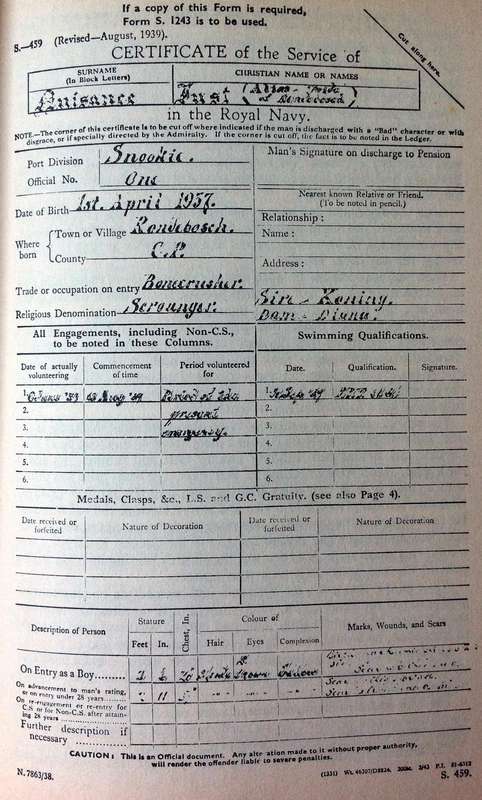 If a copy of this Form is required,
Form S. 1243 is to be used.
S.—459 (Revised—August, 1939).
Cut along here.
CERTIFICATE of the Service of
SURNAME
(In Block Letters)
CHRISTIAN NAME OR NAMES
Nuisance
Just
in the Royal Navy.
NOTE.—The corner of this certificate is to be cut off where indicated if the man is discharged with a "Bad" character or with
disgrace, or if specially directed by the Admiralty. If the corner is cut off, the fact is to be noted in the Ledger.
Port Division Snookie.
Official No. One
Man's Signature on discharge to Pension
Date of Birth 1st April 1937.
Where born
Town or Village Rondebosch.
County C.P.
Nearest known Relative or Friend.
(To be noted in pencil.)
Relationship :
Name :
Address :
Trade or occupation on entry Bonecrusher.
Religious Denomination Scrounger.
Sire - Koning.
Dam - Diana.
All Engagements, including Non-C.S.,
to be noted in these Columns.
Swimming Qualifications.
Date of actually
volunteering
Commencement
of time
Period volunteered
for
Date.
Qualification.
Signature.
1. Period of the
present
emergency.
2.
3.
4.
5.
6.
1.
2.
3.
4.
5.
6.
Medals, Clasps, &c., L.S. and G.C. Gratuity. (see also Page 4).
Date received or
forfeited
Nature of Decoration
Date received or
forfeited
Nature of Decoration
Description of Person
Stature
Feet In.
Chest, In.
Colour of
Hair Eyes Complexion
Marks, Wounds, and Scars
On Entry as a Boy
Brown
On advancement to man's rating,
or on entry under 28 years
11
On re-engagement or re-entry for
C.S. or for Non-C.S. after attain-
ing 28 years
Further description if
necessary
CAUTION : This is an Official document. Any alteration made to it without proper authority,
will render the offender liable to severe penalties.
N.7863/38.
S. 459.